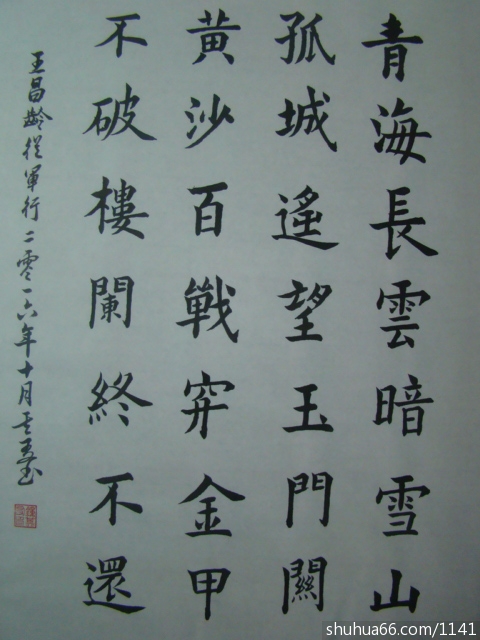 青海長雲暗雪山
孤城遙望玉門關
黄沙百戰穿金甲
不破樓闌終不還
王昌齡從軍行二零一六年十月
shuhua66.com/1141